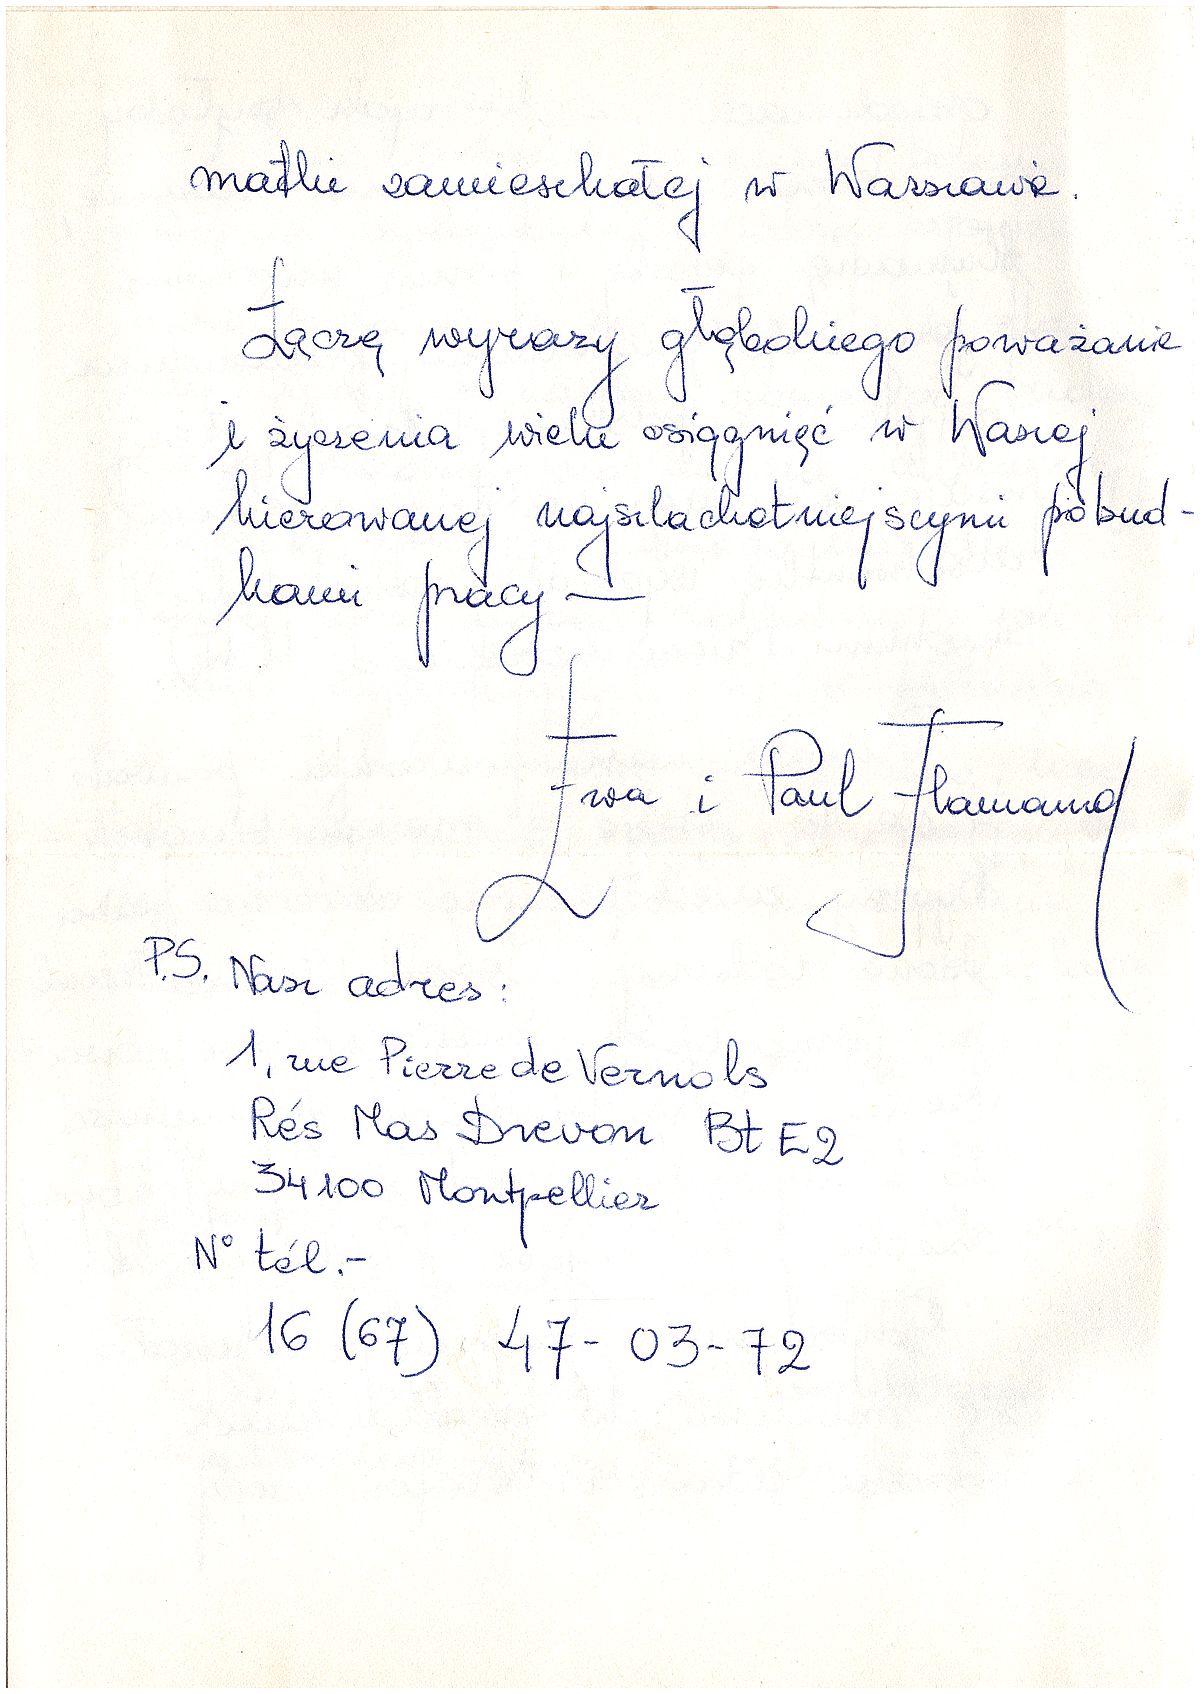 matki zamieszkałej w Warszawie.
Łączę wyrazy głębokiego poważanie
i życzenia wielu osiągnięć w Waszej
kierowanej najszlachetniejszymi pobud-
kami pracy —
Ewa i Paul Flamand
P.S. Nasz adres :
1, rue Pierre de Vernols
Rés Mas Drevon Bt E2
34100 Montpellier
N° tél.-
16 (67) 47-03-72